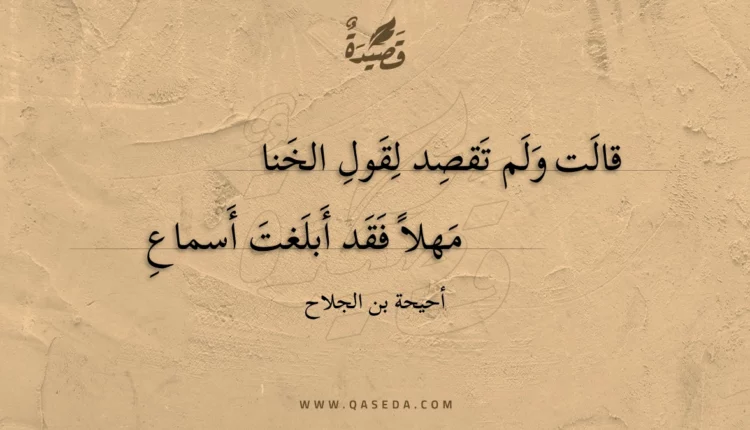 قَصِيدَةٌ
قالَت وَلَم تَقصِد لِقَولِ الخَنا
مَهلاً فَقَد أَبلَغتَ أَسماعِ
أحيحة بن الجلاح
WWW.QASEDA.COM